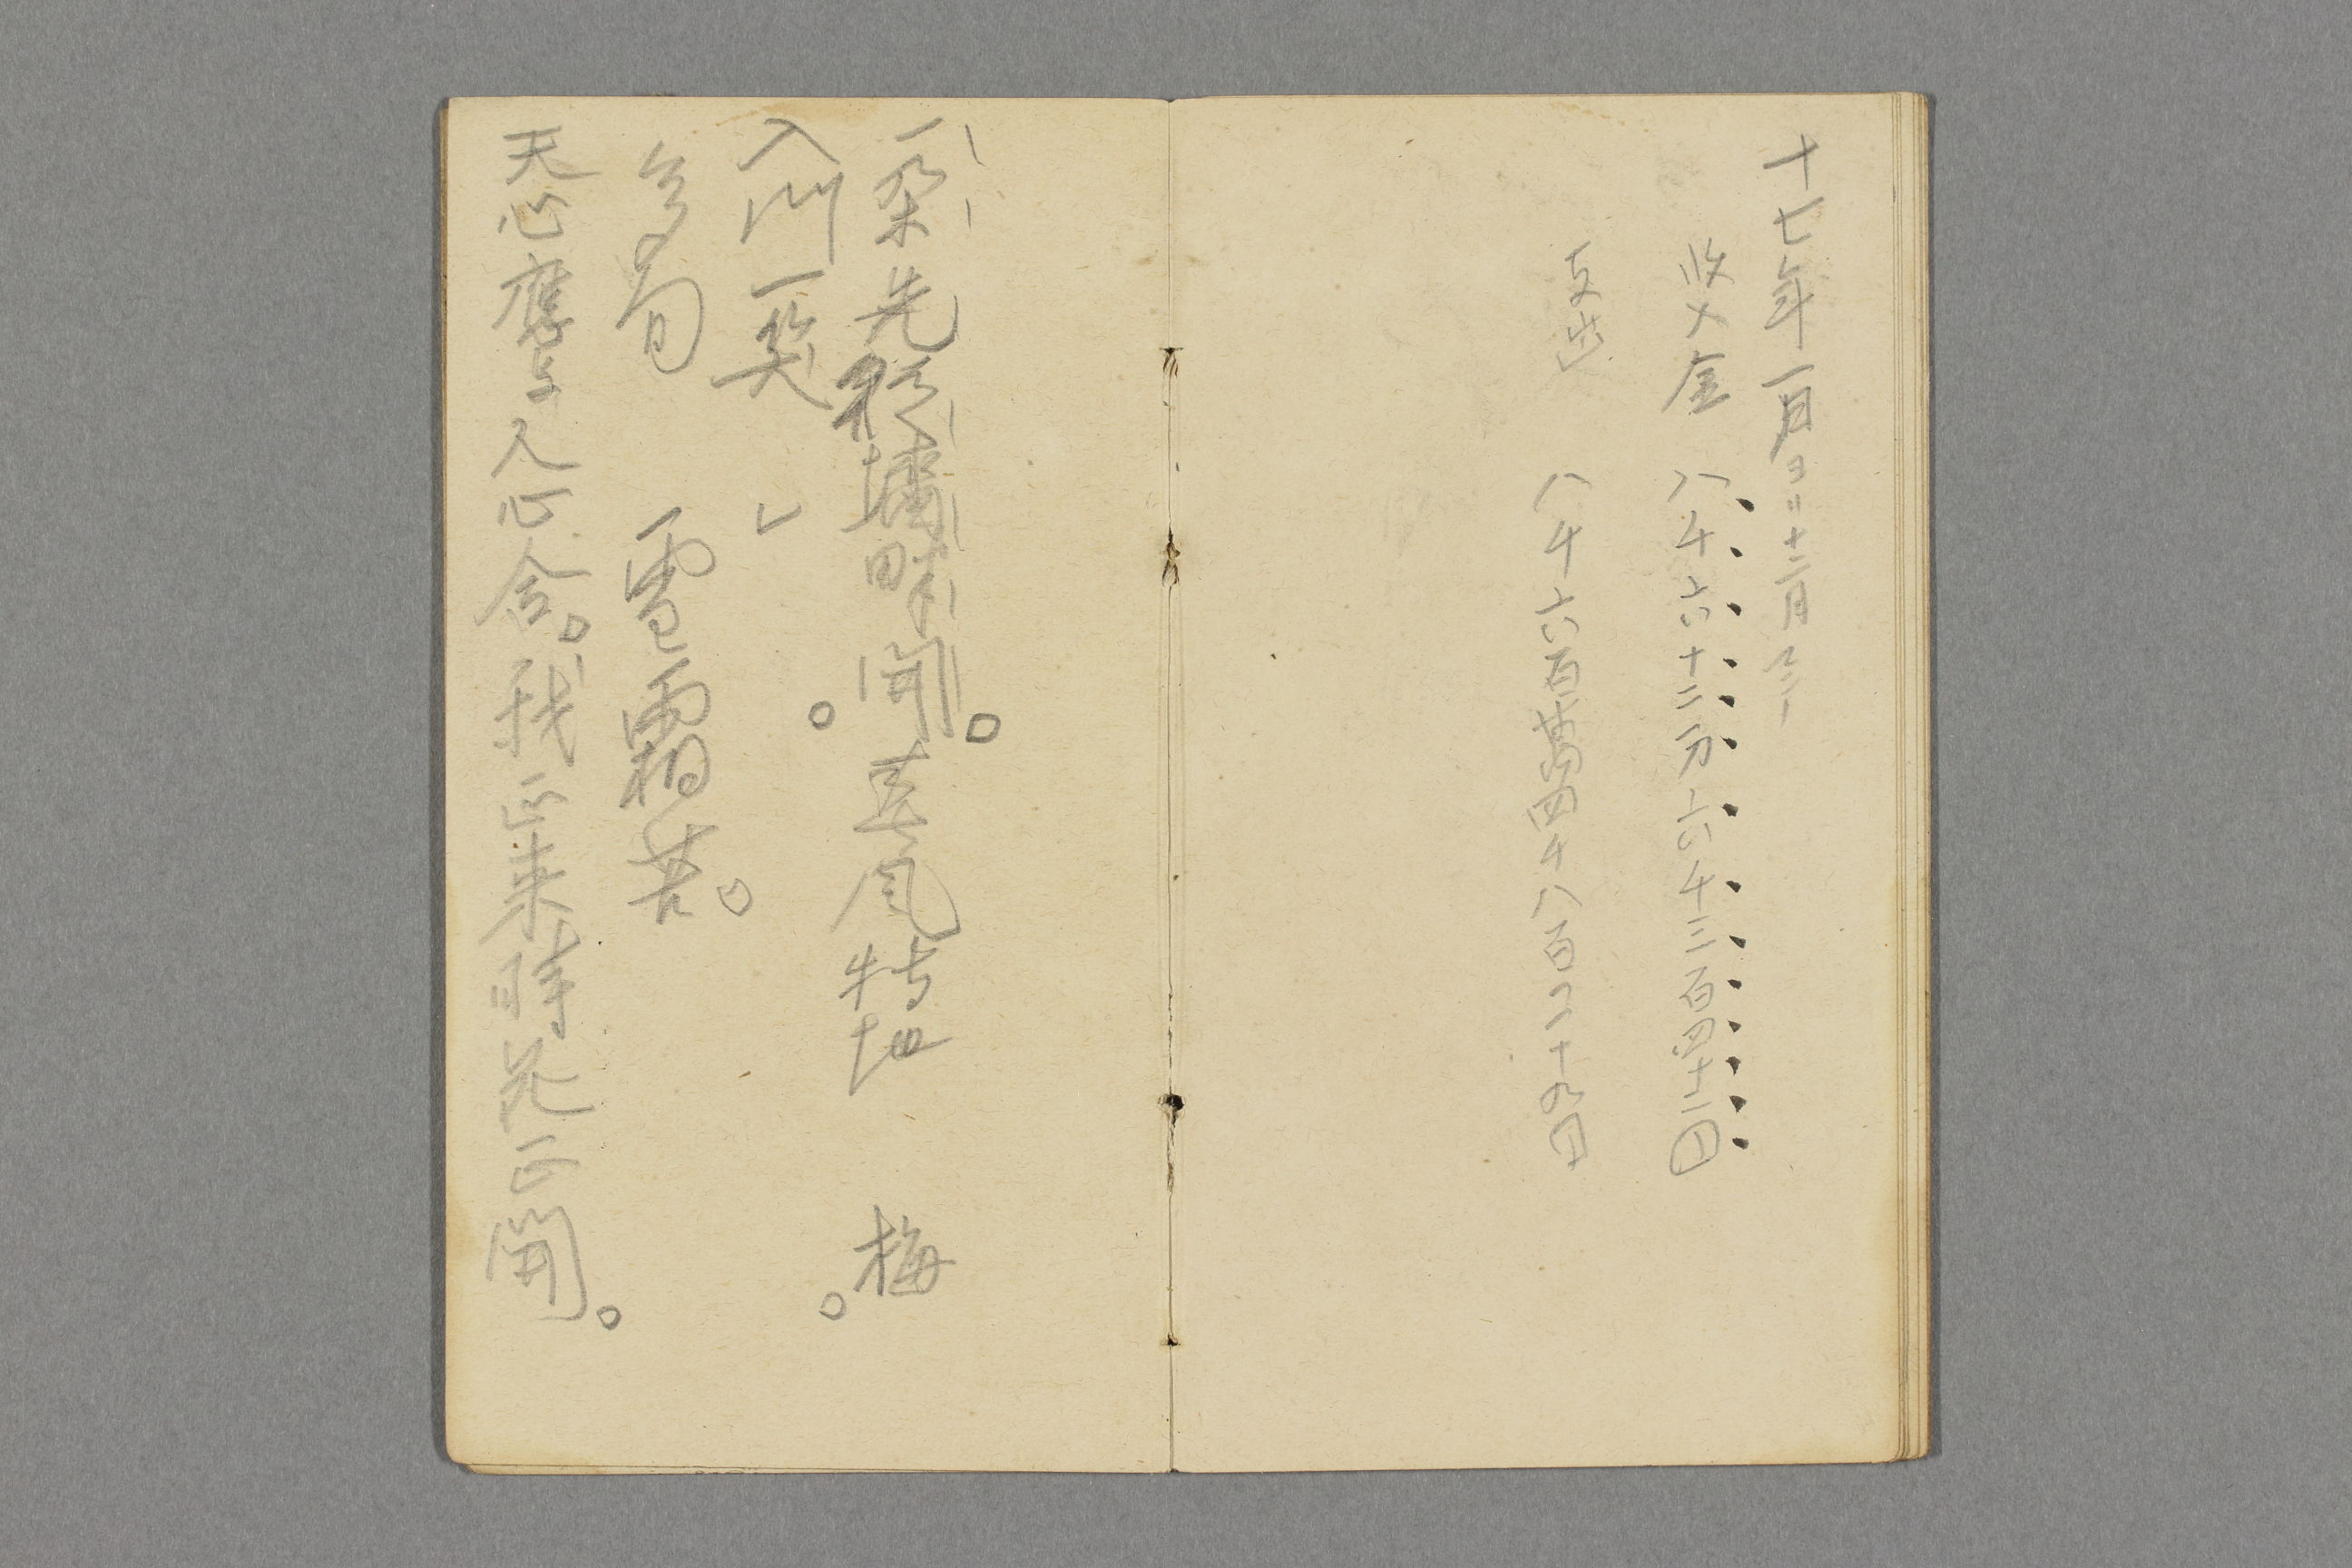 十七年一月ヨリ十二月迄
收入金 八千六十二万六千三百四十二円
支出 八千六百萬四千八百二十九円
一朶先 墻畔開。春風特地 梅。
入門一笑。
多旬 雪霜苦。
天心應与人心合。我正来時花正開。